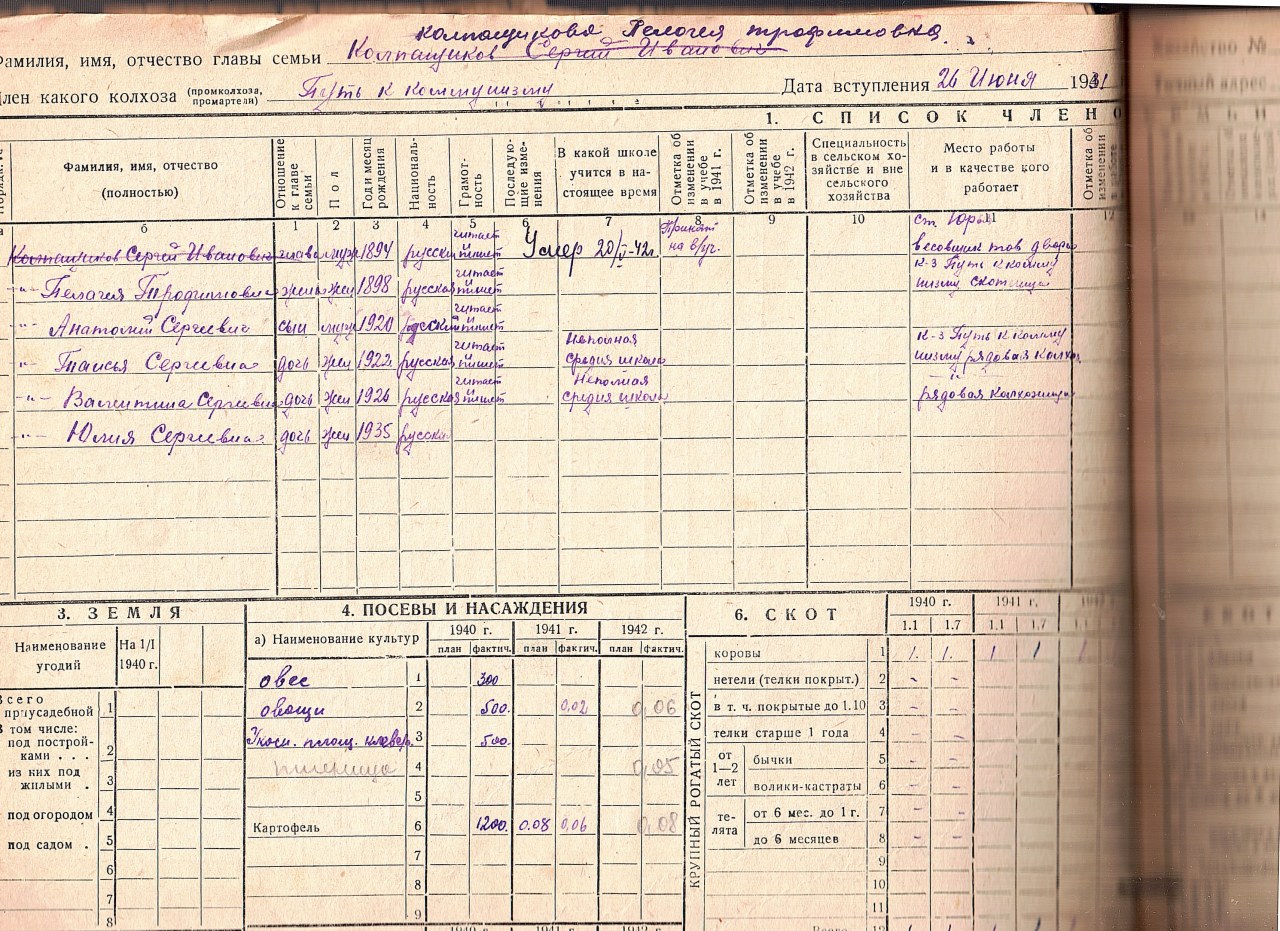 Колпащикова Пелогея трофимовна
Фамилия, имя, отчество главы семьи Колпащиков Сергей Иванович
Член какого колхоза (промколхоза, промартели) Путь к коммунизму Дата вступления 26 Июня 1931
1. СПИСОК ЧЛЕНО
Фамилия, имя, отчество (полностью) Отношение к главе семьи Пол Год и месяц рождения Националь-ность Грамот-ность Последую-щие изме-нения В какой школе учится в на-стоящее время Отметка об изменении в учебе в 1941 г. Отметка об изменении в учебе в 1942 г. Специальность в сельском хо-зяйстве и вне сельского хозяйства Место работы и в качестве кого работает Отметка об изменении
а б 1 2 3 4 5 6 7 8 9 10 11 12
Колпащиков Сергей Иванович глава муж 1894 русский читает пишет Умер 20/V-42г. Принят на в/уч. весовщик тов двора
-"- Пелагея Трофимовна жена жен 1898 русская читает пишет к-з Путь к коммунизму
-"- Анатолий Сергеевич сын муж 1920 русский читает пишет
-"- Таисья Сергеевна дочь жен 1922 русская читает пишет Неполная средня школа к-з Путь к коммунизму рядовая колхоз
-"- Валентина Сергеевна дочь жен 1926 русская читает пишет Неполная средня школа -"- рядовая колхозница
-"- Юлия Сергеевна дочь жен 1935 русска
3. ЗЕМЛЯ
Наименование угодий На 1/I 1940 г.
Всего приусадебной 1
В том числе:
под построй-ками . . . 2
из них под жилыми . 3
под огородом 4
под садом . 5
6
7
8
4. ПОСЕВЫ И НАСАЖДЕНИЯ
а) Наименование культур 1940 г. 1941 г. 1942 г.
план фактич. план фактич. план фактич.
овес 1 300
овощи 2 500. 0,02 0,06
площ. клевер. 3 500.
пшеница 4 0,05
5
Картофель 6 1200. 0.08 0,06 0,08
7
8
9
1940 г. 1941 г. 1942 г.
6. СКОТ
1940 г. 1941 г.
1.1 1.7 1.1 1.7
КРУПНЫЙ РОГАТЫЙ СКОТ
коровы 1 1. 1. 1 1 1
нетели (телки покрыт.) 2 - -
в т. ч. покрытые до 1.10 3 - -
телки старше 1 года 4 - -
от 1—2 лет
бычки 5 - -
волики-кастраты 6 - -
те-лята
от 6 мес. до 1 г. 7 - -
до 6 месяцев 8 - -
9
10
11
Всего 12